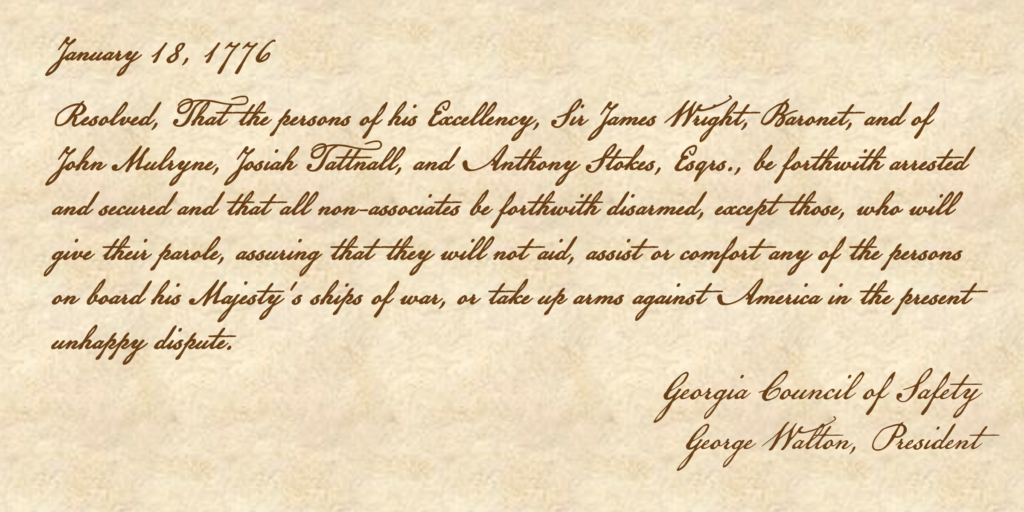 January 18, 1776
Resolved, That the persons of his Excellency, Sir James Wright, Baronet, and of
John Mulryne, Josiah Tattnall, and Anthony Stokes, Esqrs., be forthwith arrested
and secured and that all non-associates be forthwith disarmed, except those, who will
give their parole, assuring that they will not aid, assist or comfort any of the persons
on board his Majesty's ships of war, or take up arms against America in the present
unhappy dispute.
Georgia Council of Safety
George Walton, President